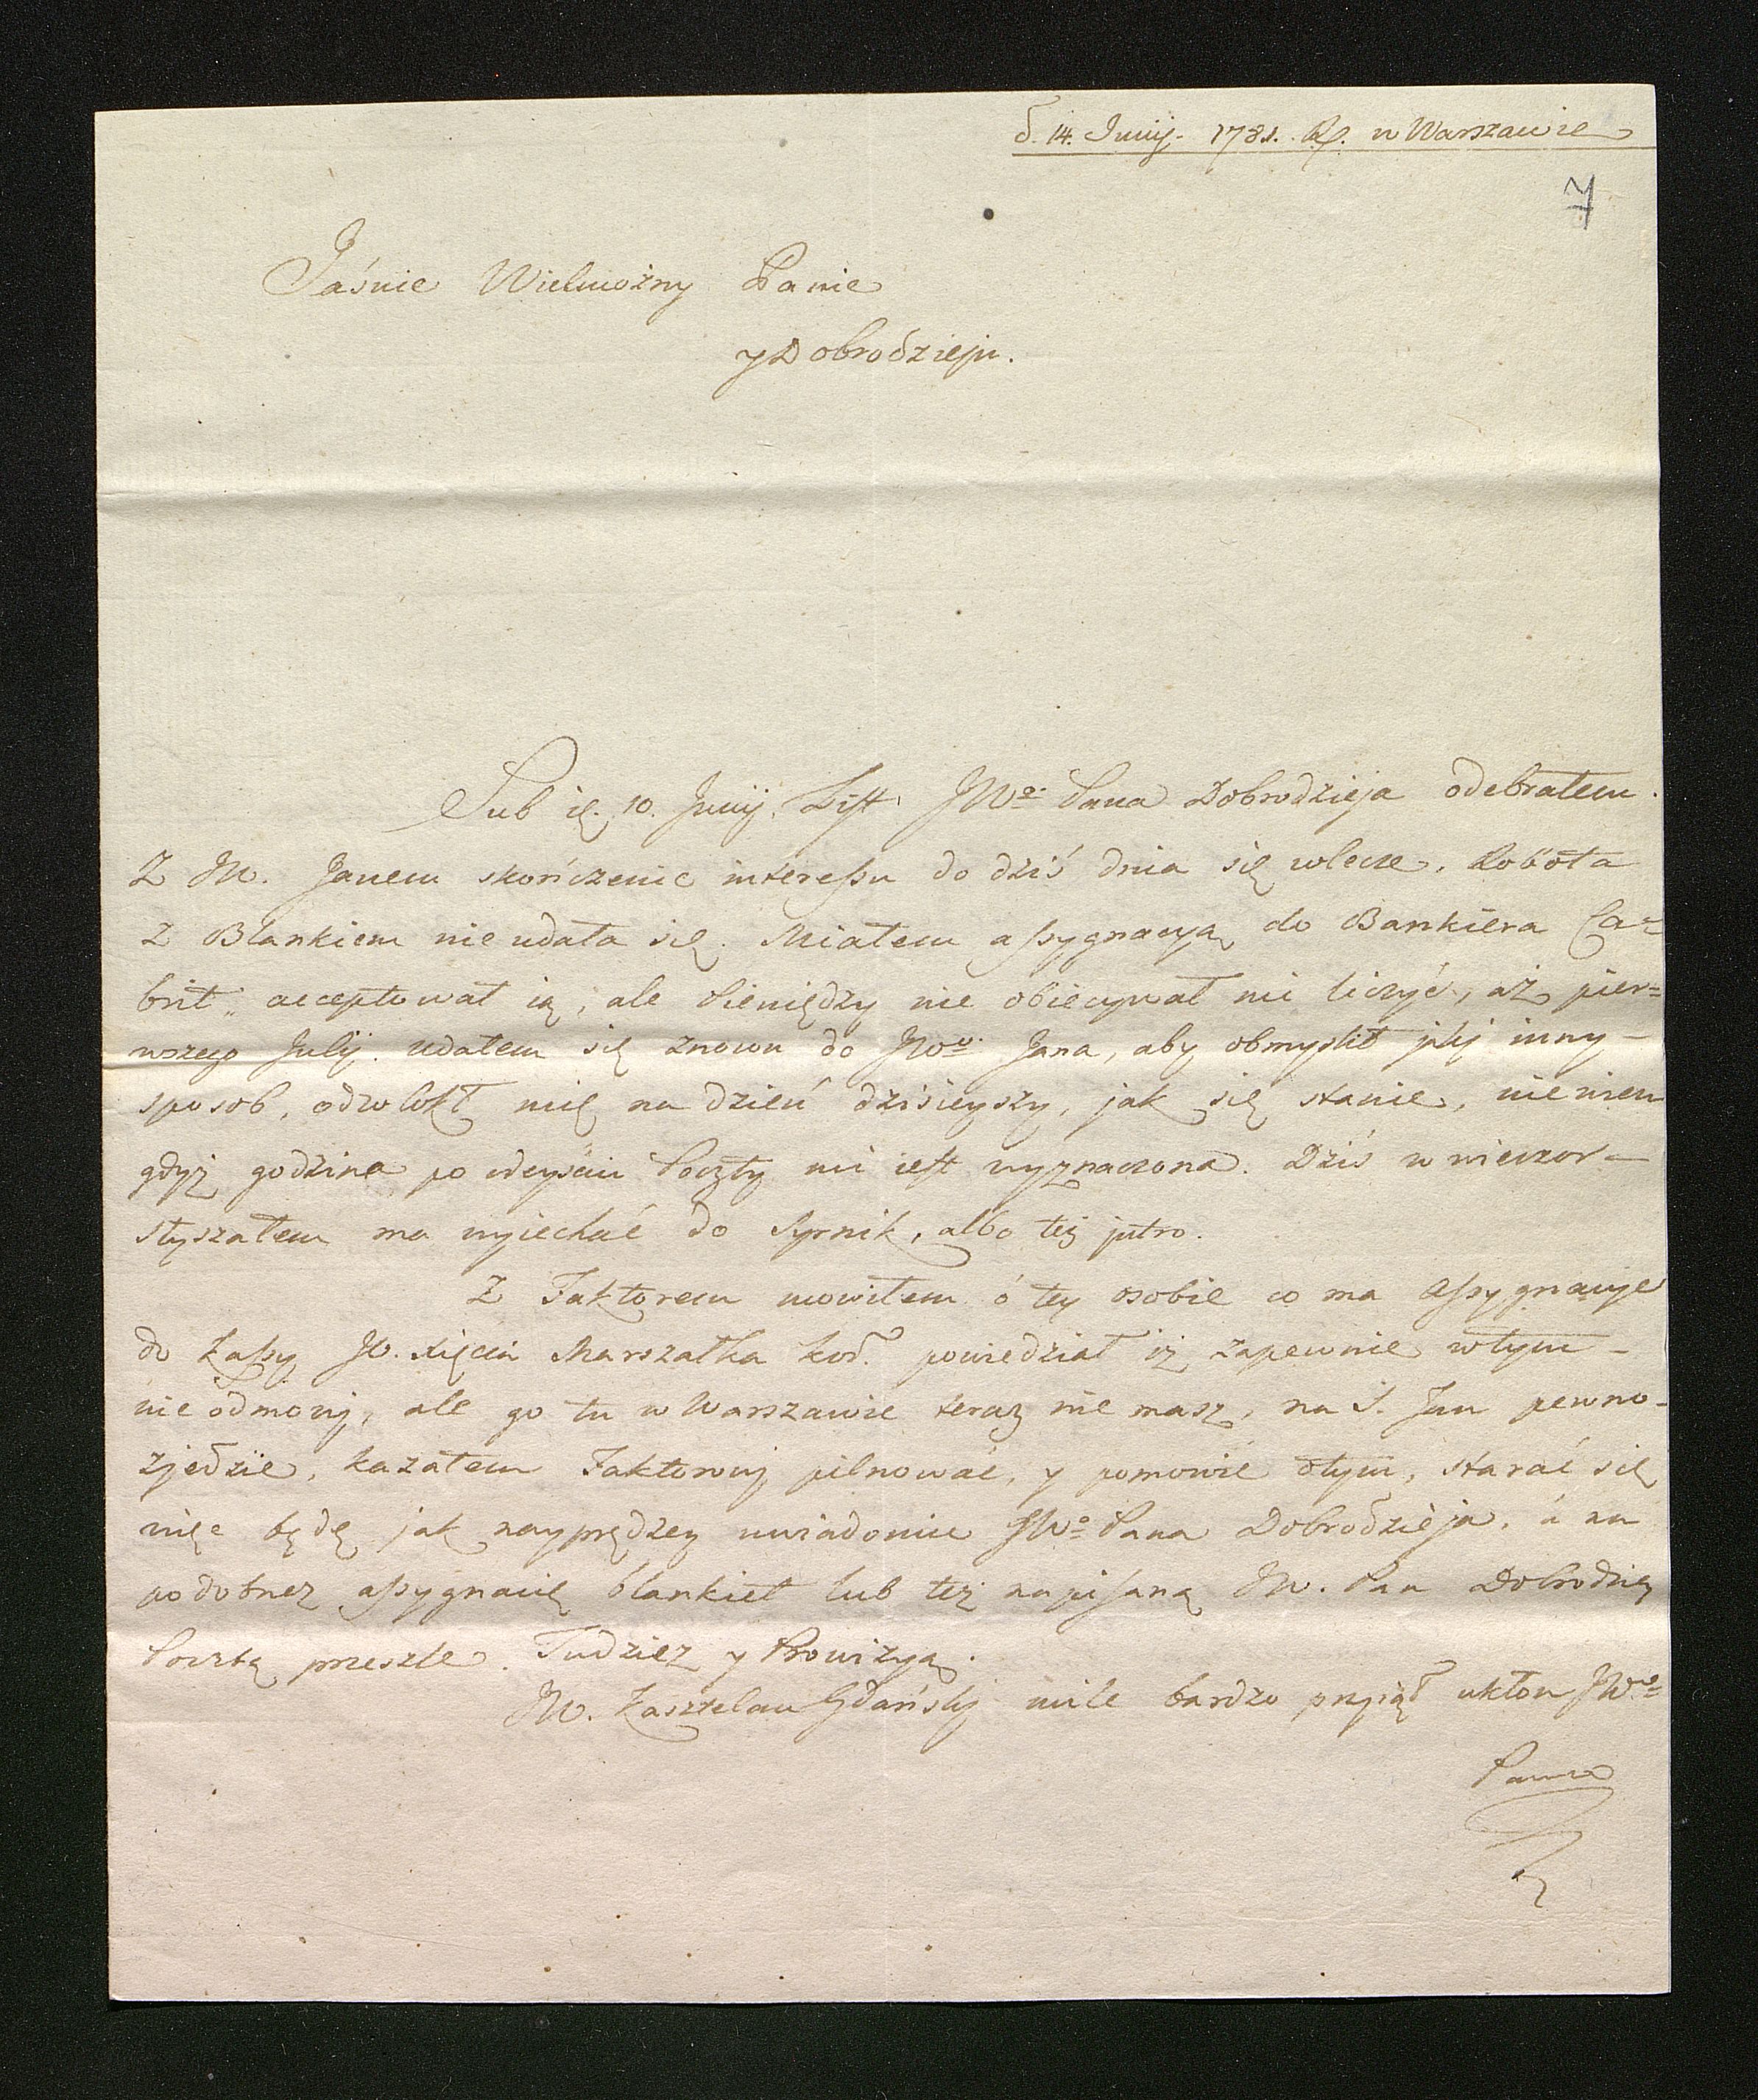 d. 14. Junij. 1781. R. w Warszawie
7
Jaśnie Wielmożny Panie
y Dobrodzieju.
Sub 10. Junij. List JWo. Pana Dobrodzieja odebrałem.
Z JW. Janem skończenie interessu do dziś dnia się wlecze. Robota
z Blankiem nie udała się. Miałem assygnacyą do Bankiera Ca=
brit acceptował ią, ale Pieniędzy nie obiecywał mi liczyć, aż pier=
wszego Julij. udałem się znowu do JWo. Jana, aby obmyslił jaki inny
sposob, odwlokł mię na dzień dzisieyszy, jak się stanie, nie wiem
gdyż godzina po odeyściu Poczty mi iest wyznaczona. Dziś w wieczor
słyszałem ma wyiechać do Syrnik, albo też jutro.
Z Faktorem mowiłem ó tey osobie co ma Assygnacye
do Kassy JO. Xięcia Marszałka Kor. powiedział iż zapewnie w tym
nie odmowi, ale go tu w Warszawie teraz nie masz, na S. Jan pewno
zjedzie, kazałem Faktorowi pilnować, y pomowić otym, starać się
więc będę jak nayprędzey uwiadomić JWo Pana Dobrodzieja, á na
podobnez assygnacię blankiet lub też napisaną JW. Pan Dobrodziey
Pocztą przeszle. Tudziez y Prowizyą.
JW. Kasztelan Gdański mile bardzo przyiął ukłon JWo=
Pana